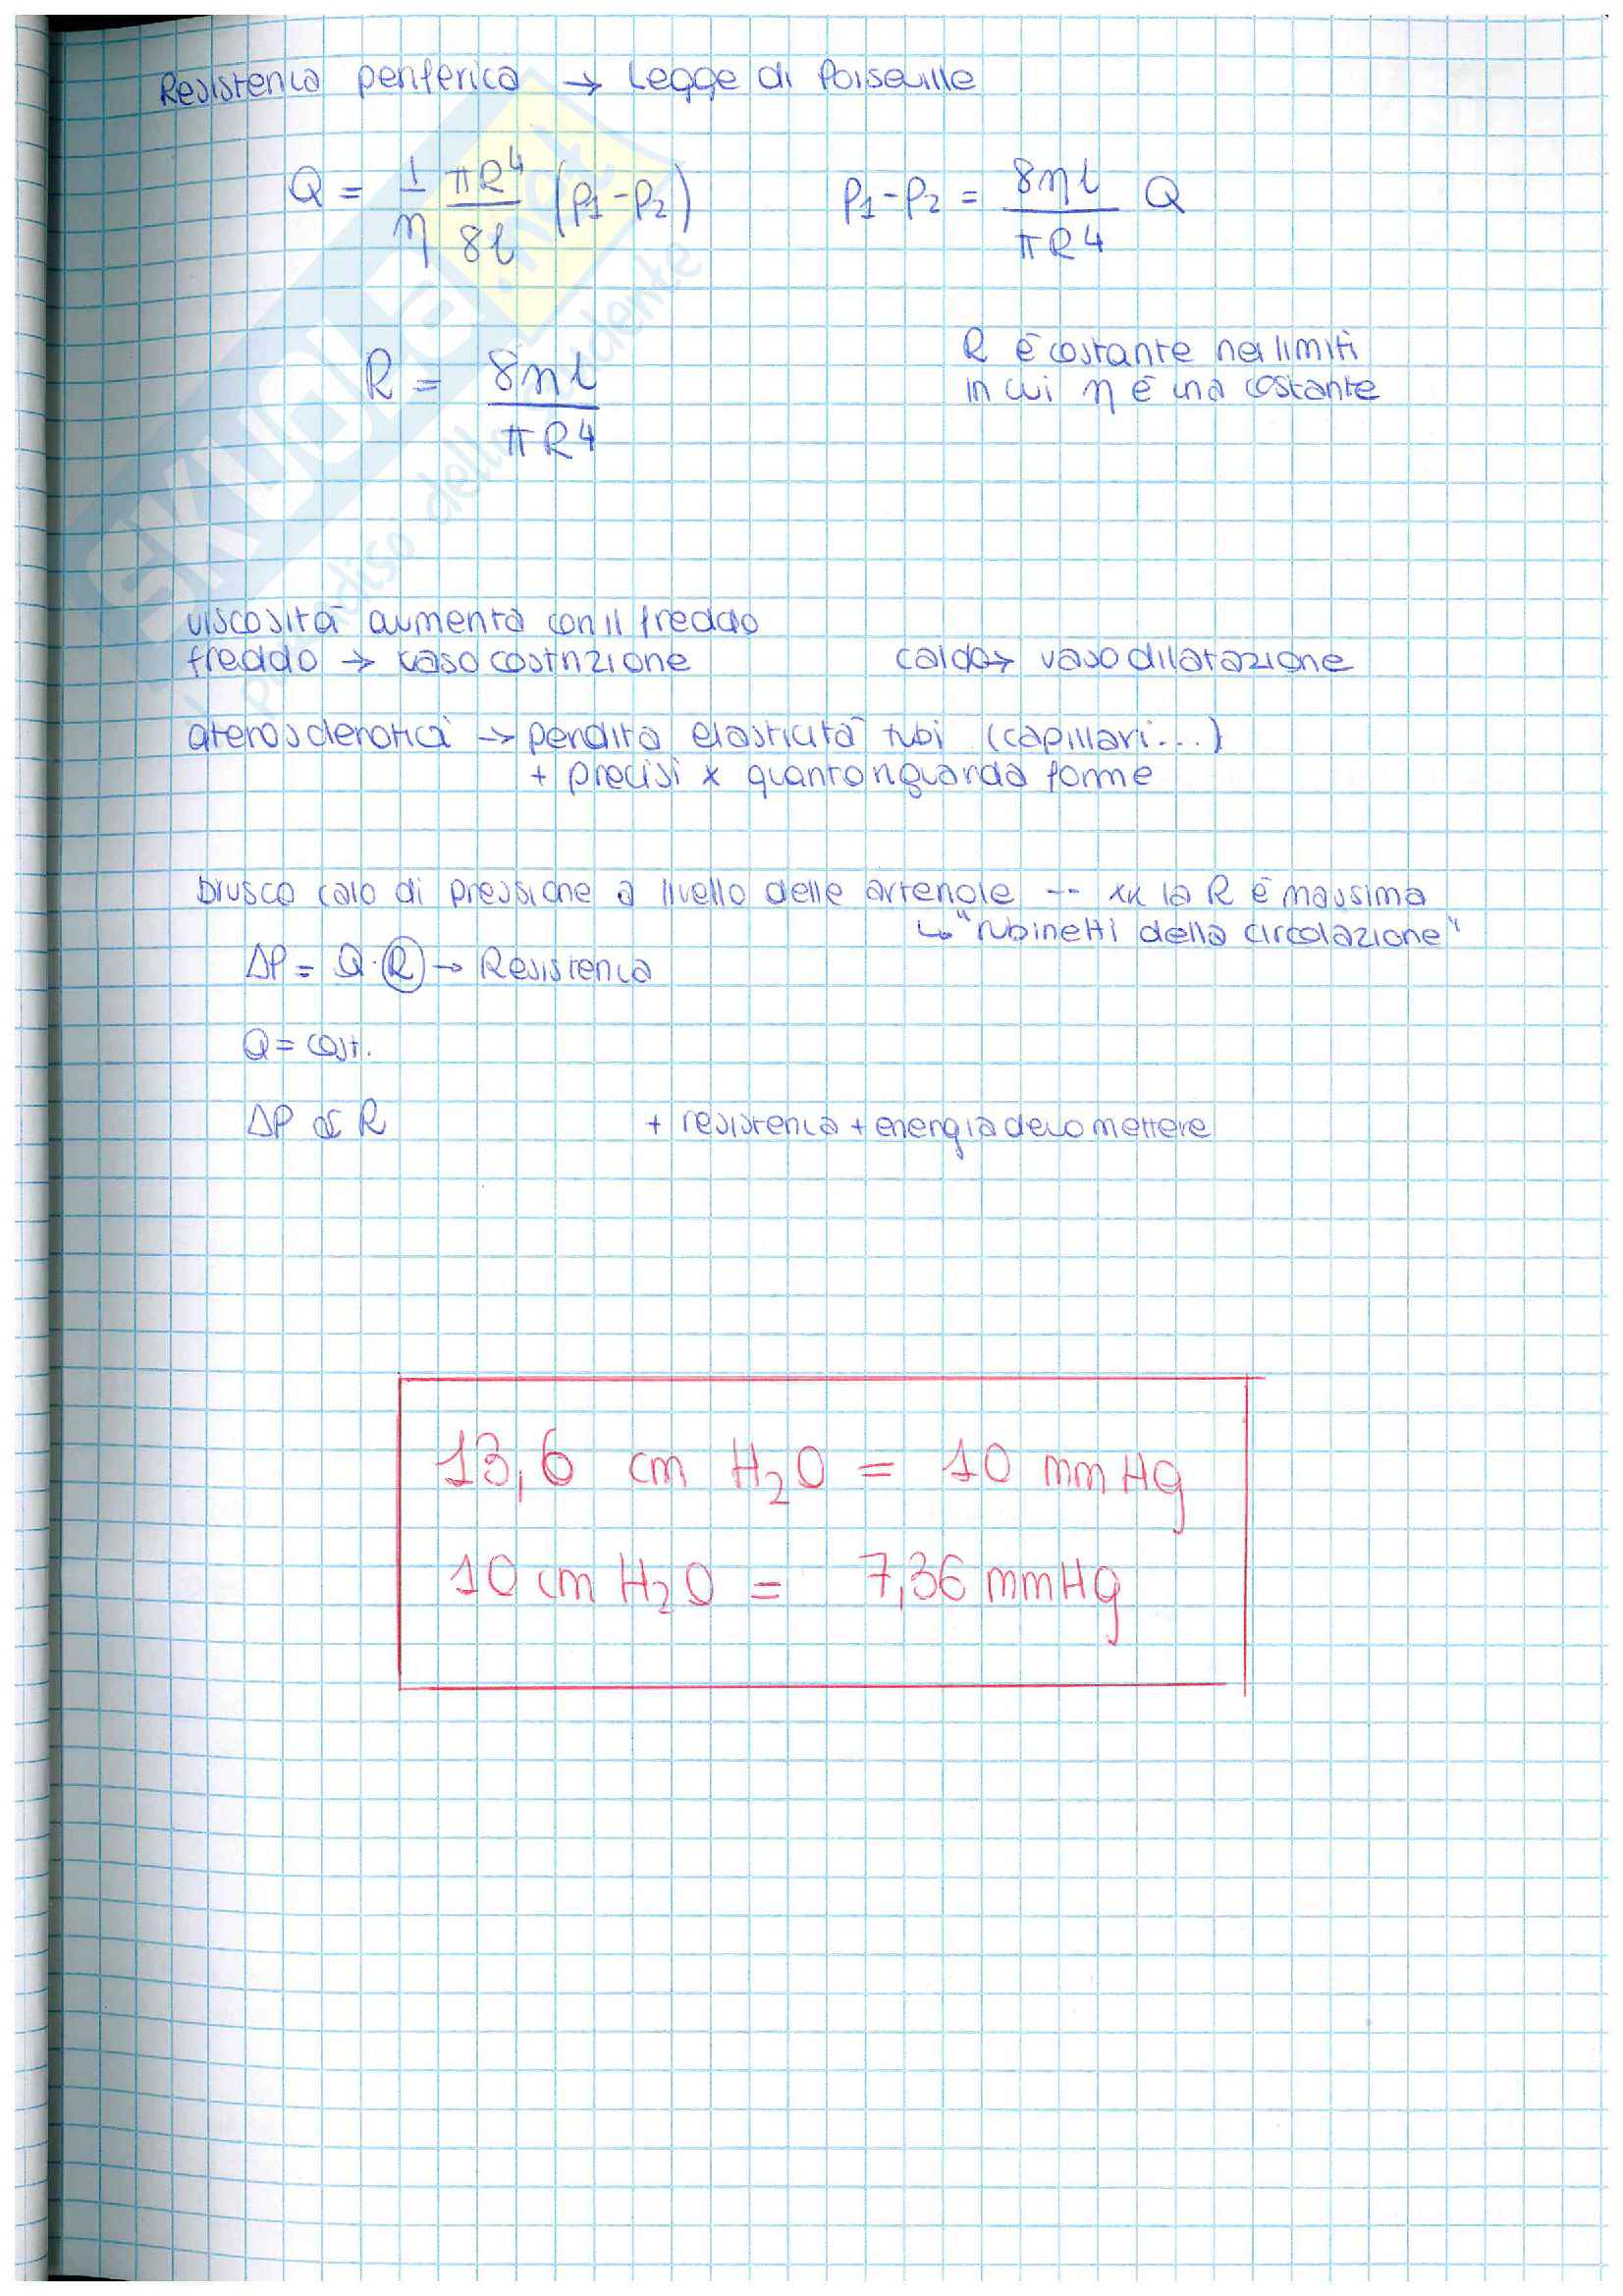 Resistenza periferica → Legge di Poiseuille
Q = 1/η πR⁴/8l (p₁-p₂)    p₁-p₂ = 8ηl/πR⁴ Q
R = 8ηl/πR⁴
R è costante nei limiti
in cui η è una costante
viscosità aumenta con il freddo
freddo → vasocostrizione    caldo → vasodilatazione
aterosclerotici → perdita elasticità tubi (capillari...)
+ precisi x quanto riguarda forme
brusco calo di pressione a livello delle arteriole -- xk la R è massima
↳ "rubinetti della circolazione"
ΔP = Q·R → Resistenza
Q = cost.
ΔP ∝ R    + resistenza + energia devo mettere
13,6 cm H₂O = 10 mmHg
10 cm H₂O = 7,36 mmHg
SKUOLA.net
il paradiso dello studente